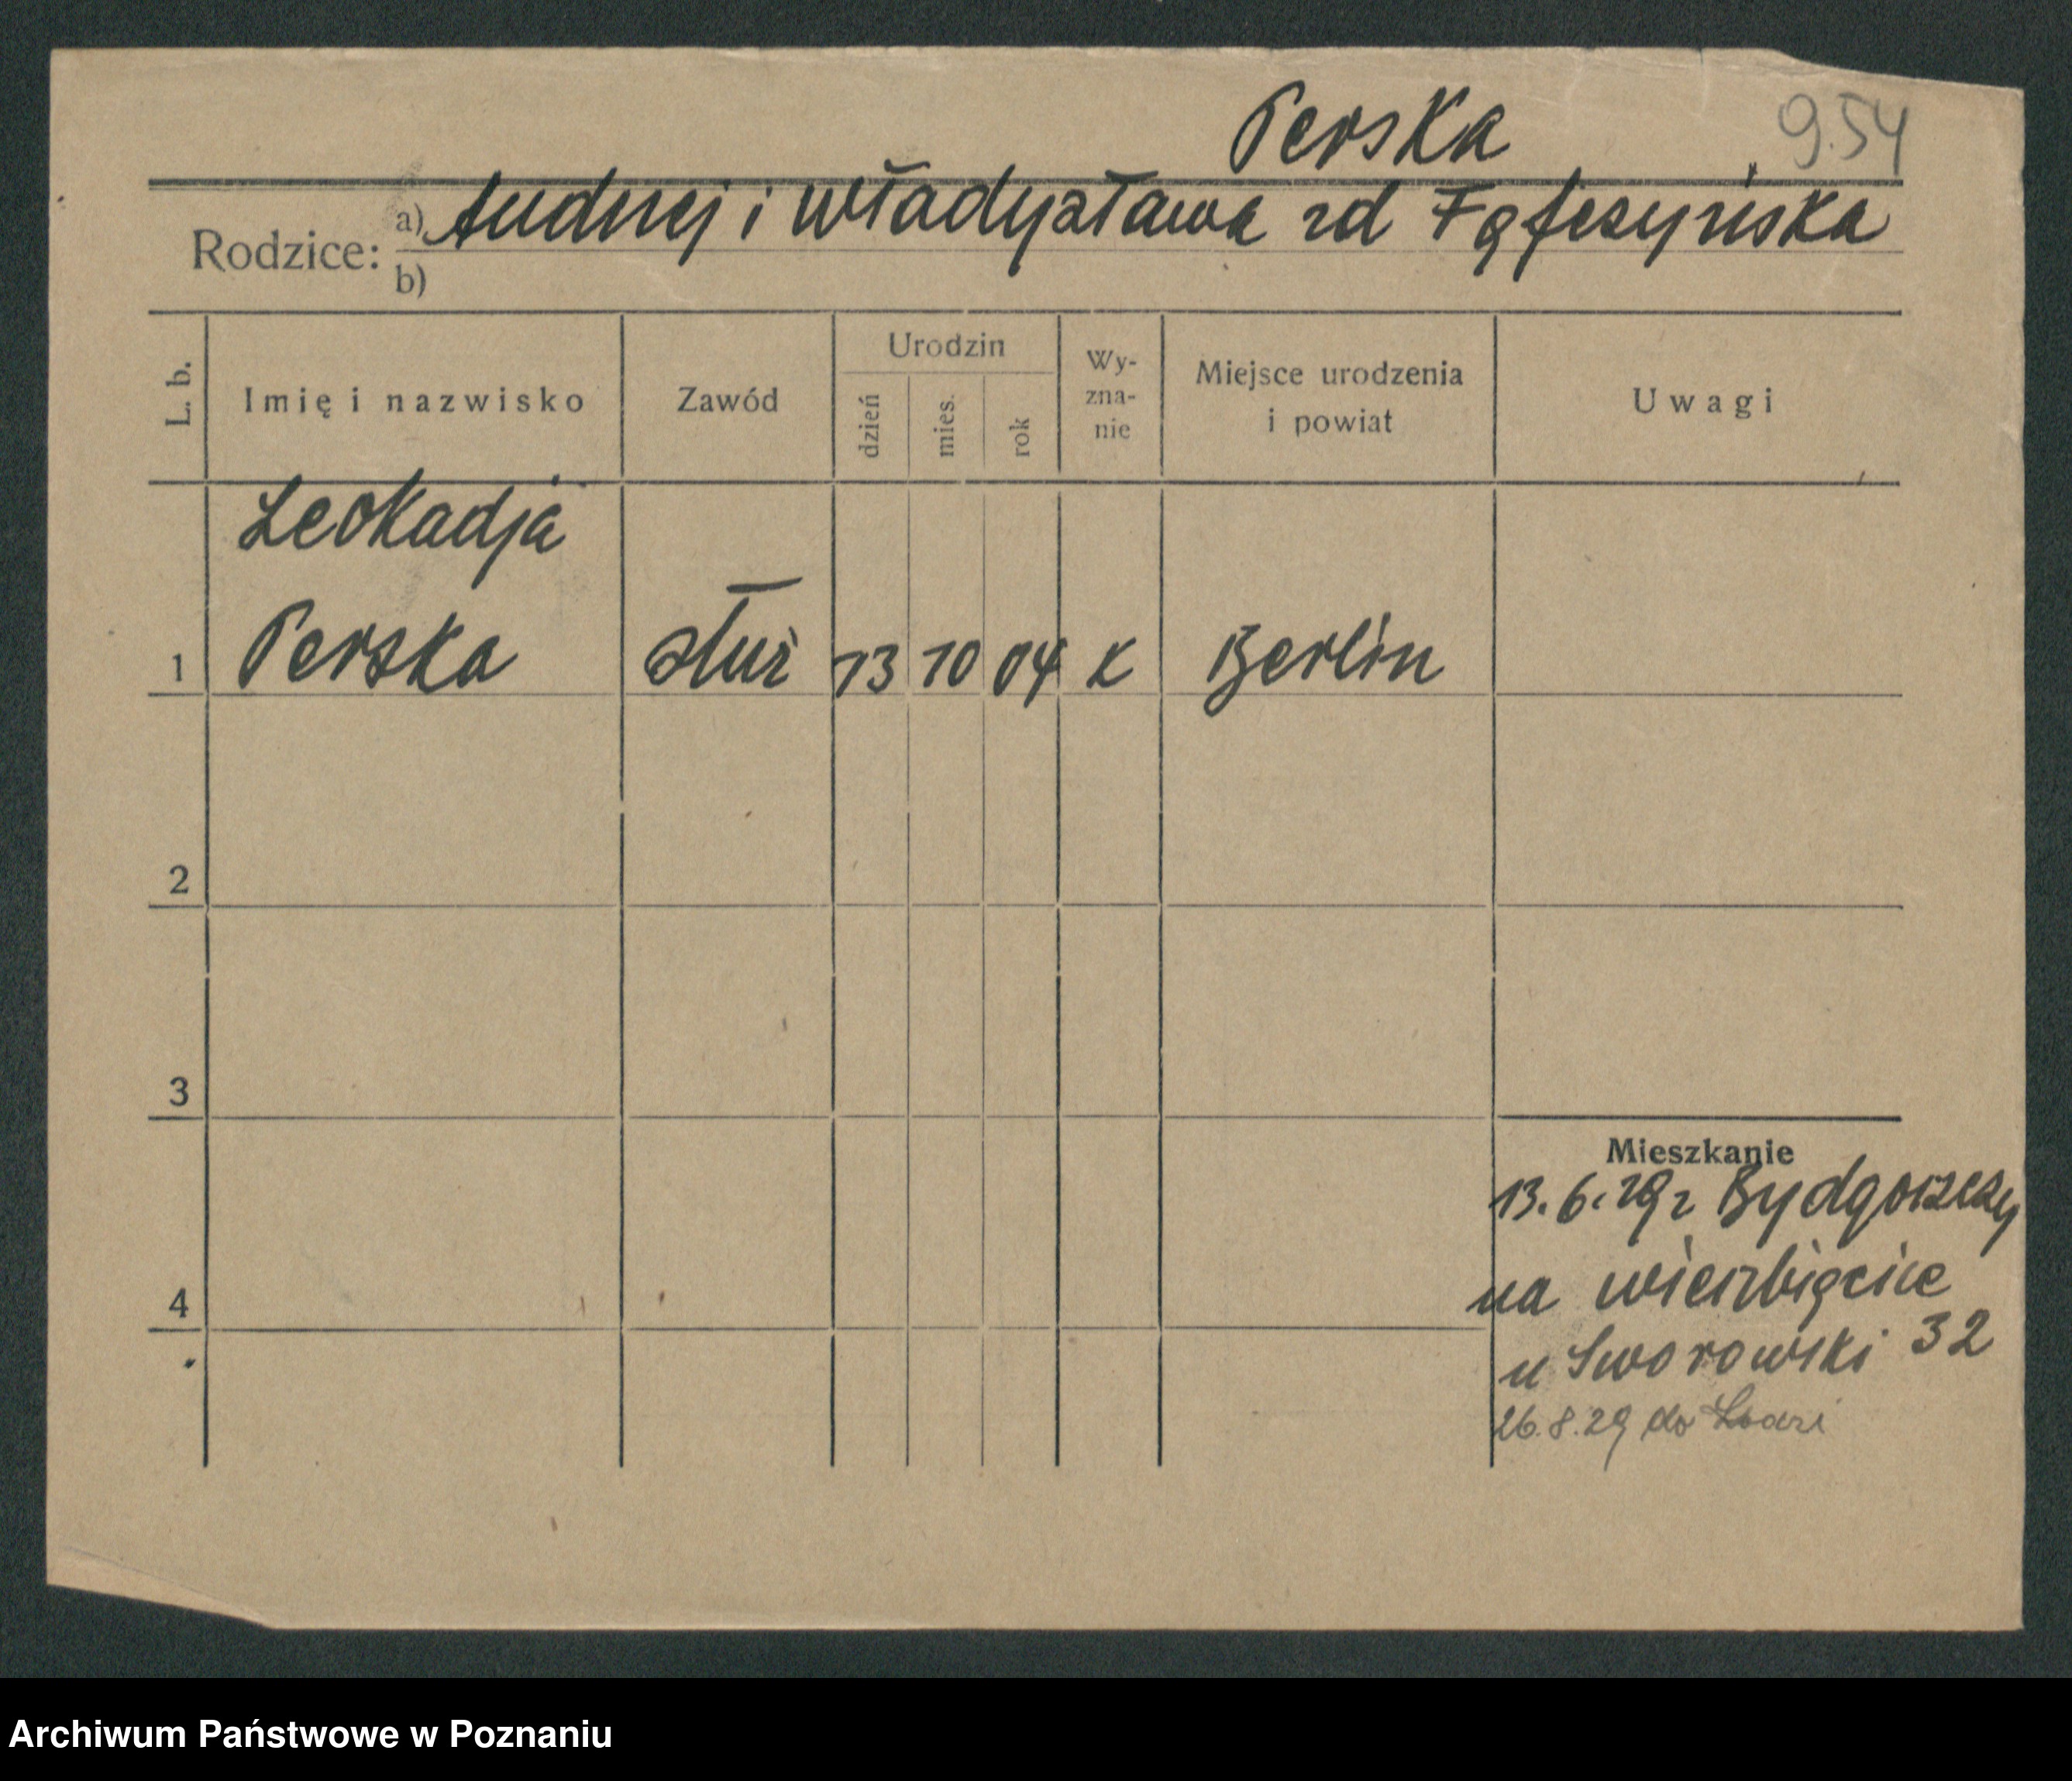 Perska 954
Rodzice: a) Andrzej i Władysława zd
b)
L. b. Imię i nazwisko Zawód Urodzin dzień mies. rok Wy-zna-nie Miejsce urodzenia i powiat Uwagi
Leokadja
1 Perska służ 13 10 04 K Berlin
2
3
Mieszkanie
13.6.29 z Bydgoszczy
na Wierzbięcice
4
u Sworowski 32
26.8.29 do Łodzi
Archiwum Państwowe w Poznaniu